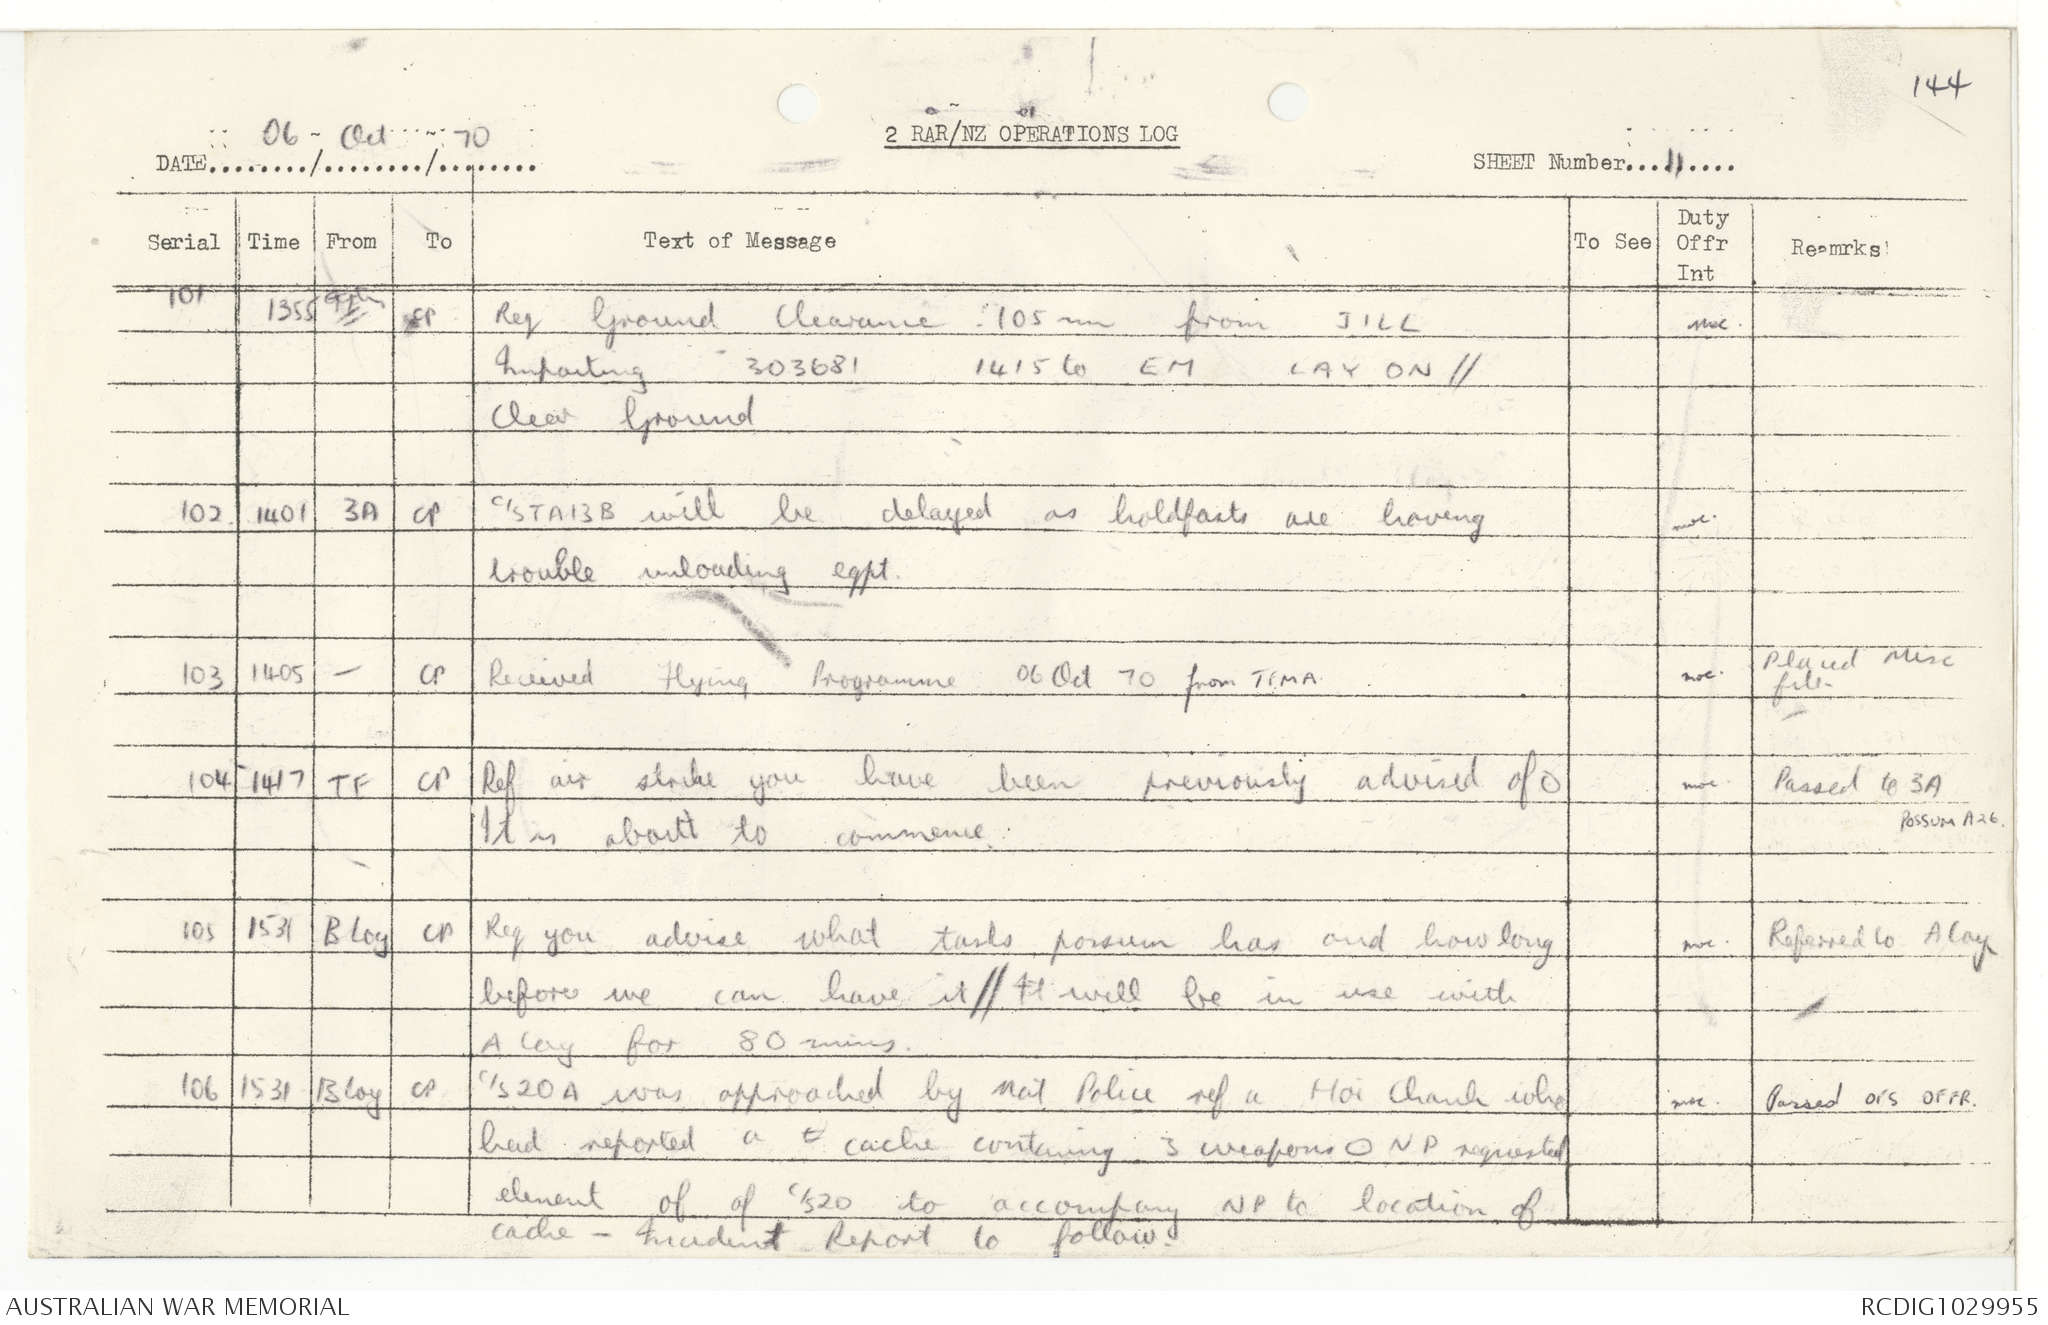 144
06 Oct 70
2 RAR/NZ OPERATIONS LOG
DATE......../......../........
SHEET Number....11....
Serial Time From To Text of Message To See Duty Offr Int Reamrks
101 1355 CP Req Ground Clearance 105mm from JILL
Impacting 303681 1415 to EM LAY ON //
Clear Ground
102 1401 3A CP C/STA13B will be delayed as holdfasts are having
trouble unloading eqpt.
103 1405 - CP Received Flying Programme 06 Oct 70 from TFMA. Placed Misc
file
104 1417 TF CP Ref air strike you have been previously advised of O Passed to 3A
It is about to commence. POSSUM A26.
105 1531 B Coy CP Req you advise what tasks possum has and how long Referred to A Coy
before we can have it // It will be in use with
A Coy for 80 mins.
106 1531 B Coy CP C/S20A was approached by Nat Police ref a Hoi Chanh who Passed OFFR.
had reported a cache containing 3 weapons O NP requested
element of of C/S20 to accompany NP to location of
cache - Incident Report to follow.
AUSTRALIAN WAR MEMORIAL
RCDIG1029955